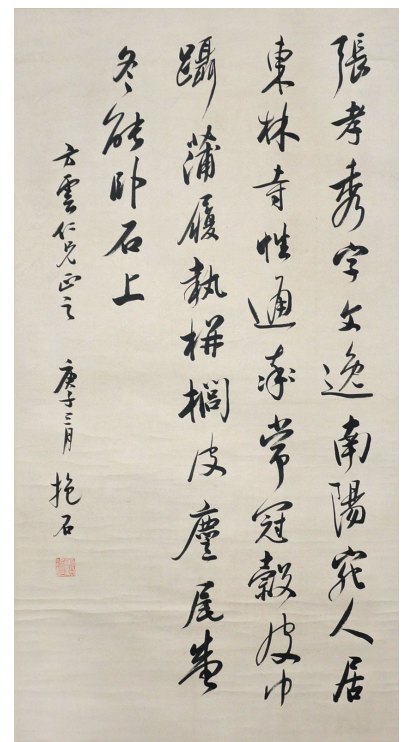 張孝秀字文逸南陽宛人居
東林寺性通率常冠縠皮巾
躡蒲履執栟櫚皮麈尾盛
冬能卧石上
方雲仁兄正之 庚子三月 抱石